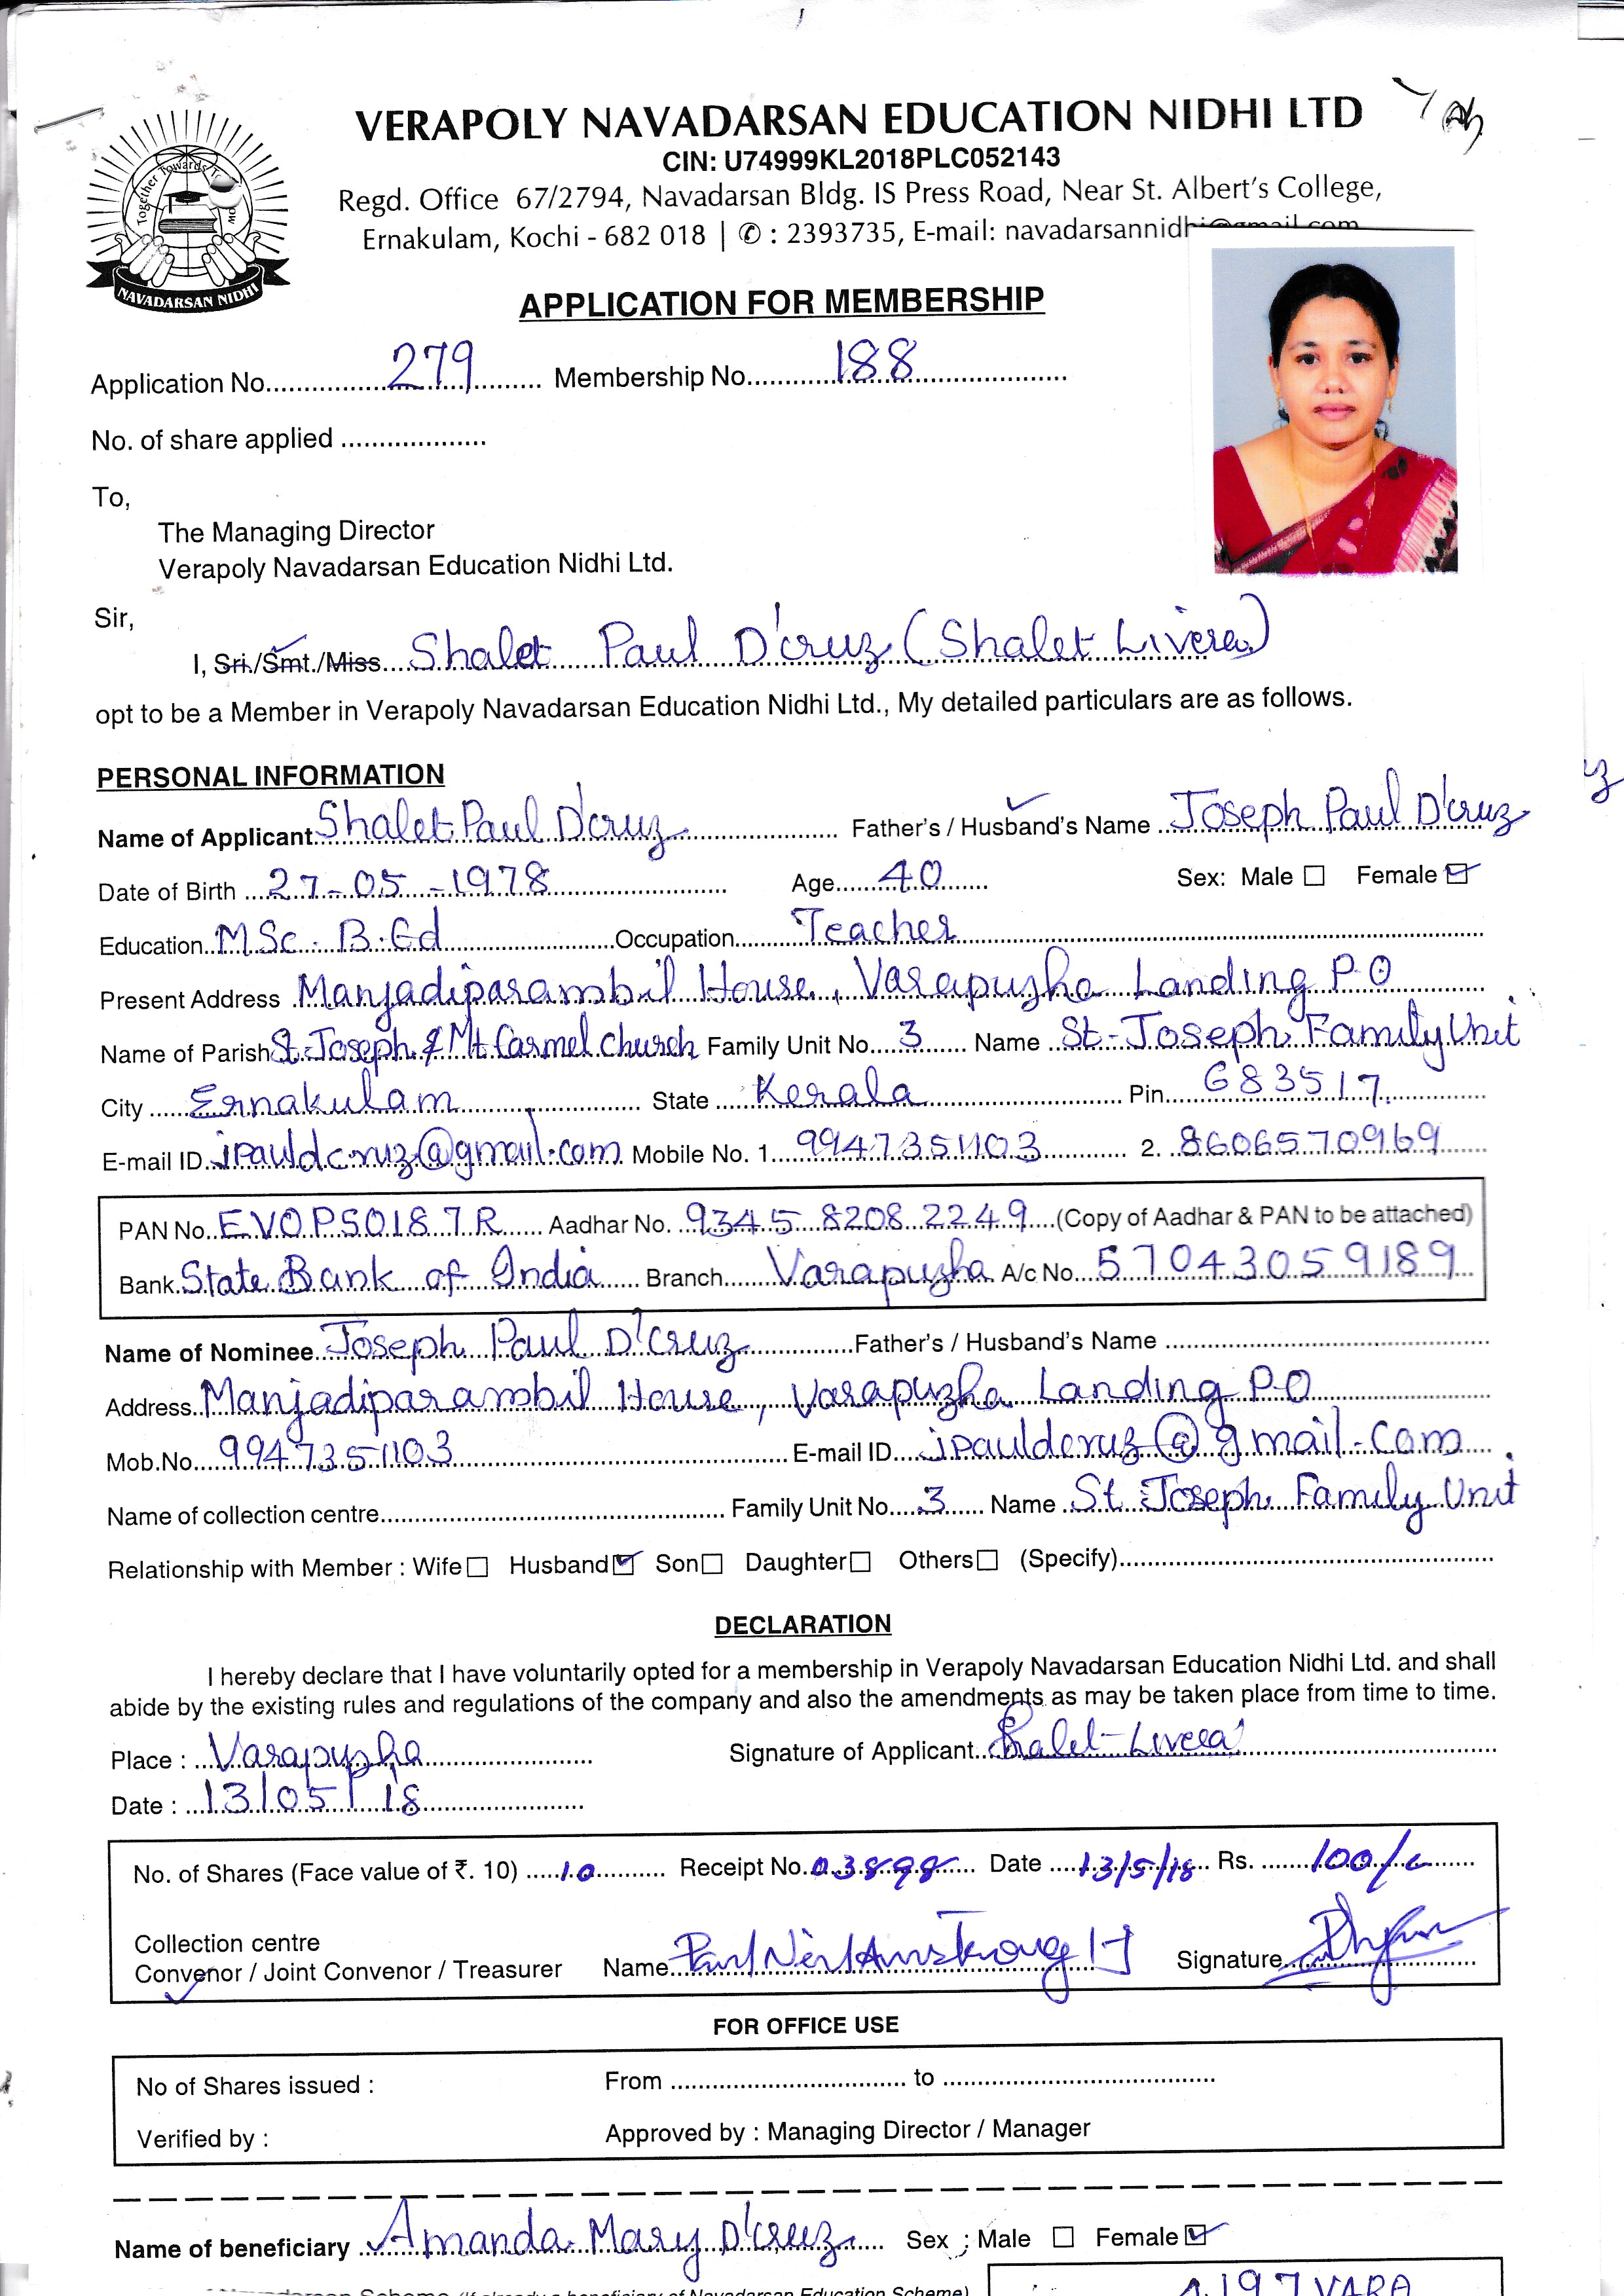 VERAPOLY NAVADARSAN EDUCATION NIDHI LTD
CIN: U74999KL2018PLC052143
Regd. Office 67/2794, Navadarsan Bldg. IS Press Road, Near St. Albert's College,
Ernakulam, Kochi - 682 018 | ✆ : 2393735, E-mail: navadarsannidhi@gmail.com
Together Towards
NAVADARSAN NIDHI
APPLICATION FOR MEMBERSHIP
Application No. 279 Membership No. 188
No. of share applied
To,
The Managing Director
Verapoly Navadarsan Education Nidhi Ltd.
Sir,
I, Sri./Smt./Miss. Shalet Paul D'cruz (Shalet Livera)
opt to be a Member in Verapoly Navadarsan Education Nidhi Ltd., My detailed particulars are as follows.
PERSONAL INFORMATION
Name of Applicant Shalet Paul D'cruz Father's / Husband's Name Joseph Paul D'cruz
Date of Birth 27-05-1978 Age 40 Sex: Male ☐ Female ☑
Education MSc. B.Ed Occupation Teacher
Present Address Manjadiparambil House, Varapuzha Landing P.O
Name of Parish St. Joseph & Mt Carmel Church Family Unit No. 3 Name St-Joseph Family Unit
City Ernakulam State Kerala Pin 683517
E-mail ID jpauldcruz@gmail.com Mobile No. 1. 9947351103 2. 8606570969
PAN No. EVOPS0187R Aadhar No. 9345 8208 2249 (Copy of Aadhar & PAN to be attached)
Bank State Bank of India Branch Varapuzha A/c No. 57043059189
Name of Nominee Joseph Paul D'Cruz Father's / Husband's Name
Address Manjadiparambil House, Varapuzha Landing P.O
Mob.No. 9947351103 E-mail ID jpauldcruz@gmail.com
Name of collection centre Family Unit No. 3 Name St Joseph Family Unit
Relationship with Member : Wife ☐ Husband ☑ Son ☐ Daughter ☐ Others ☐ (Specify)
DECLARATION
I hereby declare that I have voluntarily opted for a membership in Verapoly Navadarsan Education Nidhi Ltd. and shall
abide by the existing rules and regulations of the company and also the amendments as may be taken place from time to time.
Place : Varapuzha Signature of Applicant Shalet Livera
Date : 13/05/18
No. of Shares (Face value of ₹. 10) 10 Receipt No. 03898 Date 13/5/18 Rs. 100/-
Collection centre
Convenor / Joint Convenor / Treasurer Name Signature
FOR OFFICE USE
No of Shares issued : From to
Verified by : Approved by : Managing Director / Manager
Name of beneficiary Amanda Mary D'cruz Sex : Male ☐ Female ☑